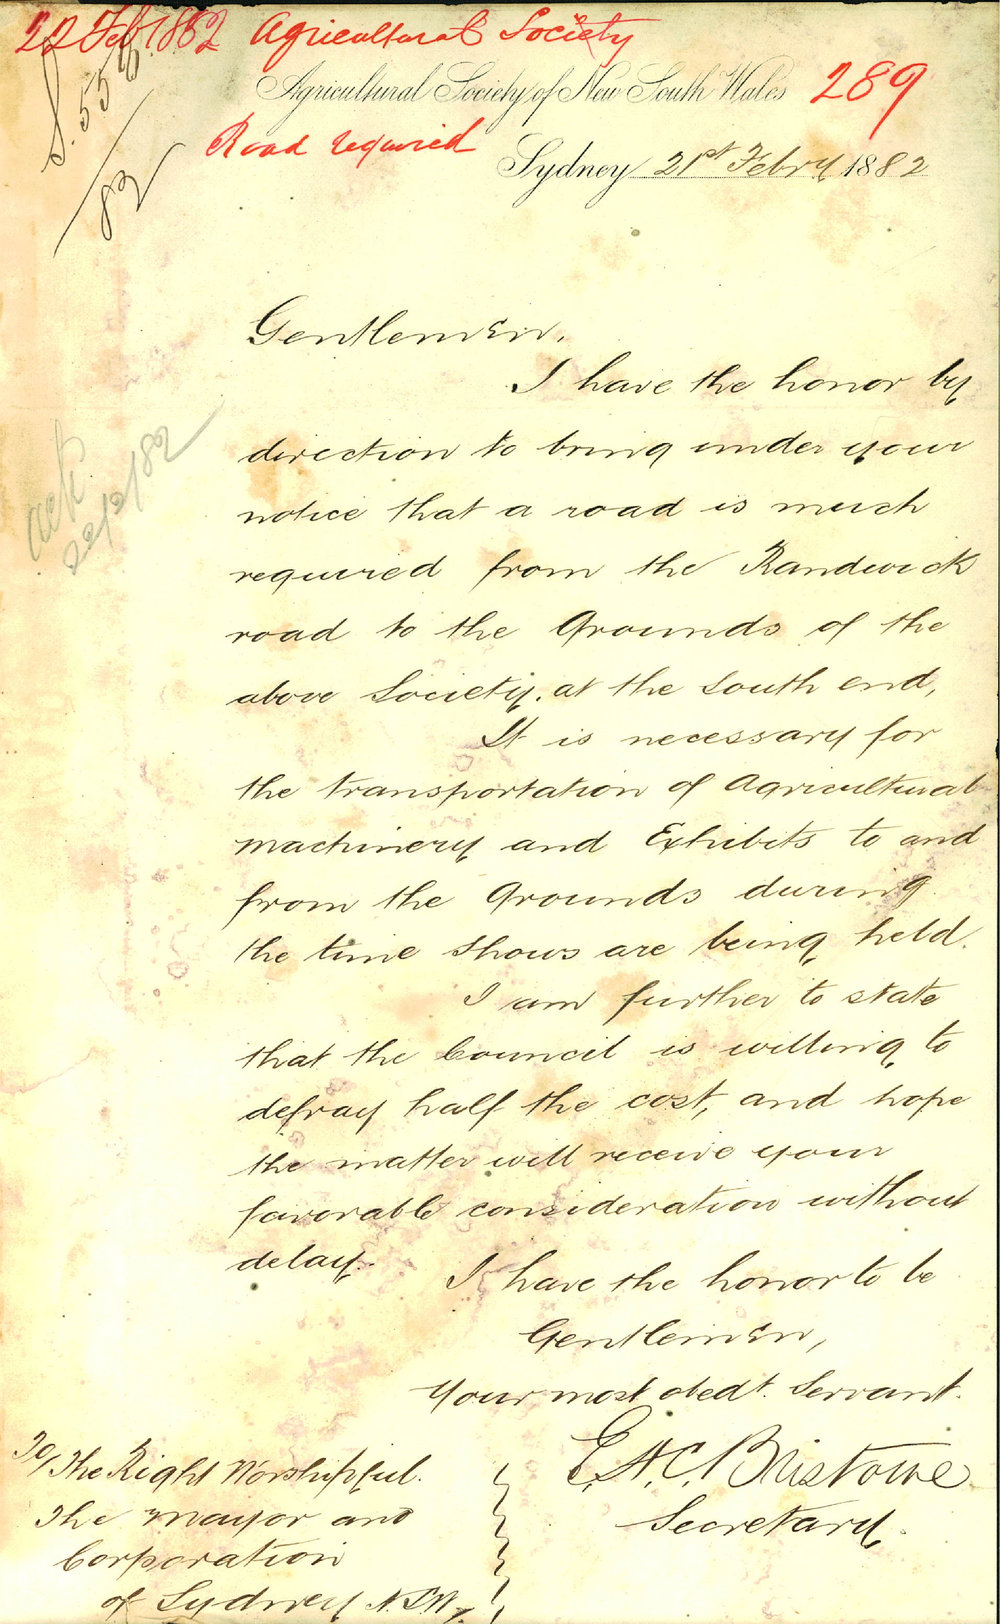 22 Feb 1882 Agricultural Society
Agricultural Society of New South Wales 289
S. 556
82
Road required
Sydney 21st Febry 1882
Gentlemen,
I have the honor by
direction to bring under your
notice that a road is much
required from the Randwick
road to the Grounds of the
above Society, at the South end,
It is necessary for
the transportation of Agricultural
machinery and Exhibits to and
from the Grounds during
the time Shows are being held.
ack
22/2/82
I am further to state
that the Council is willing to
defray half the cost, and hope
the matter will receive your
favorable consideration without
delay.
I have the honor to be
Gentlemen,
Your most obedt. Servant.
E.H.C. Bristowe
Secretary.
To/ The Right Worshipful.
The Mayor and
Corporation
of Sydney N.S.W.